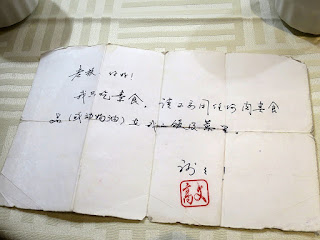 老板 你好!
我只吃素食，请不要用任何肉类食
品(或动物油)在
谢谢!
高文